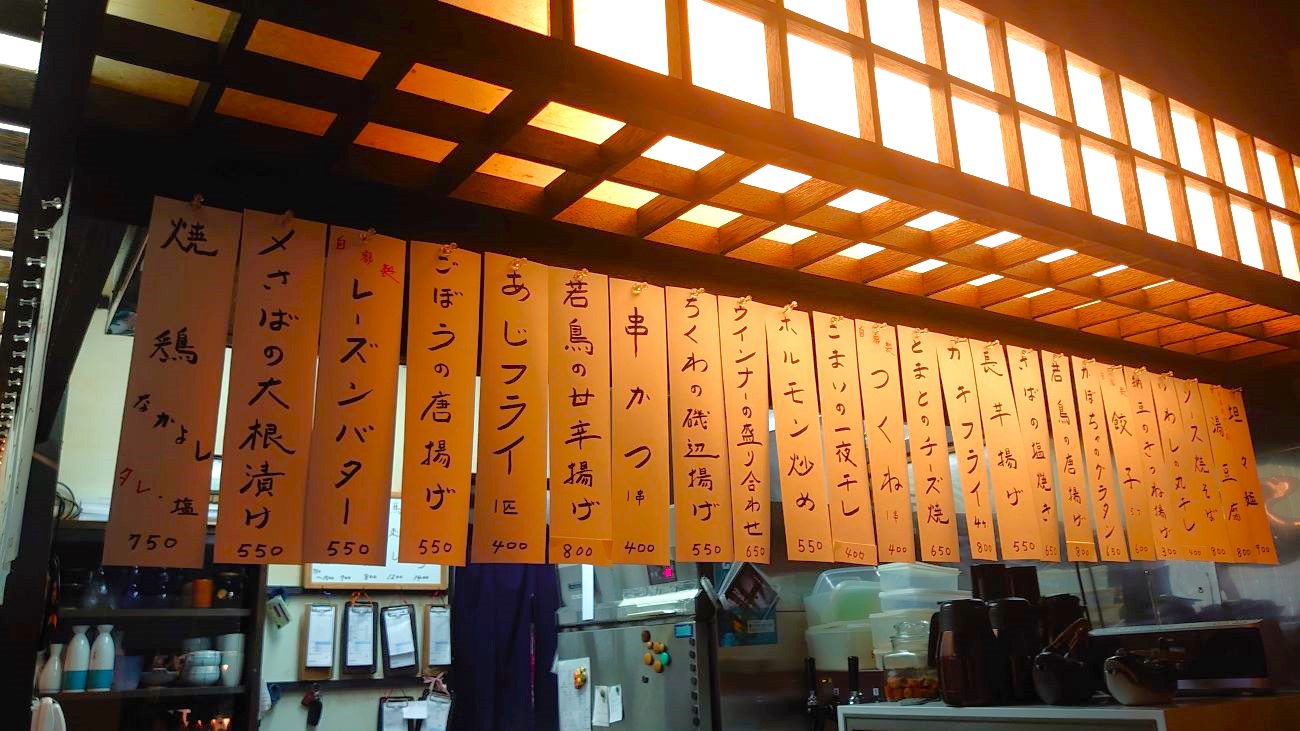 焼鶏なかよし
タレ・塩
750
〆さばの大根漬け
550
自家製
レーズンバター
550
ごぼうの唐揚げ
550
あじフライ
1匹
400
若鳥の甘辛揚げ
800
串かつ
1串
400
ちくわの磯辺揚げ
550
ウインナーの盛り合わせ
650
ホルモン炒め
550
こまいの一夜干し
400
自家製
つくね
1串
400
とまとのチーズ焼
650
カキフライ
4ヶ
800
長芋揚げ
550
さばの塩焼き
650
若鳥の唐揚げ
800
かぼちゃのグラタン
650
餃子
600
納豆のきつね揚げ
300
いわしの丸干し
400
ソース焼そば
800
湯豆腐
800
坦々麺
900